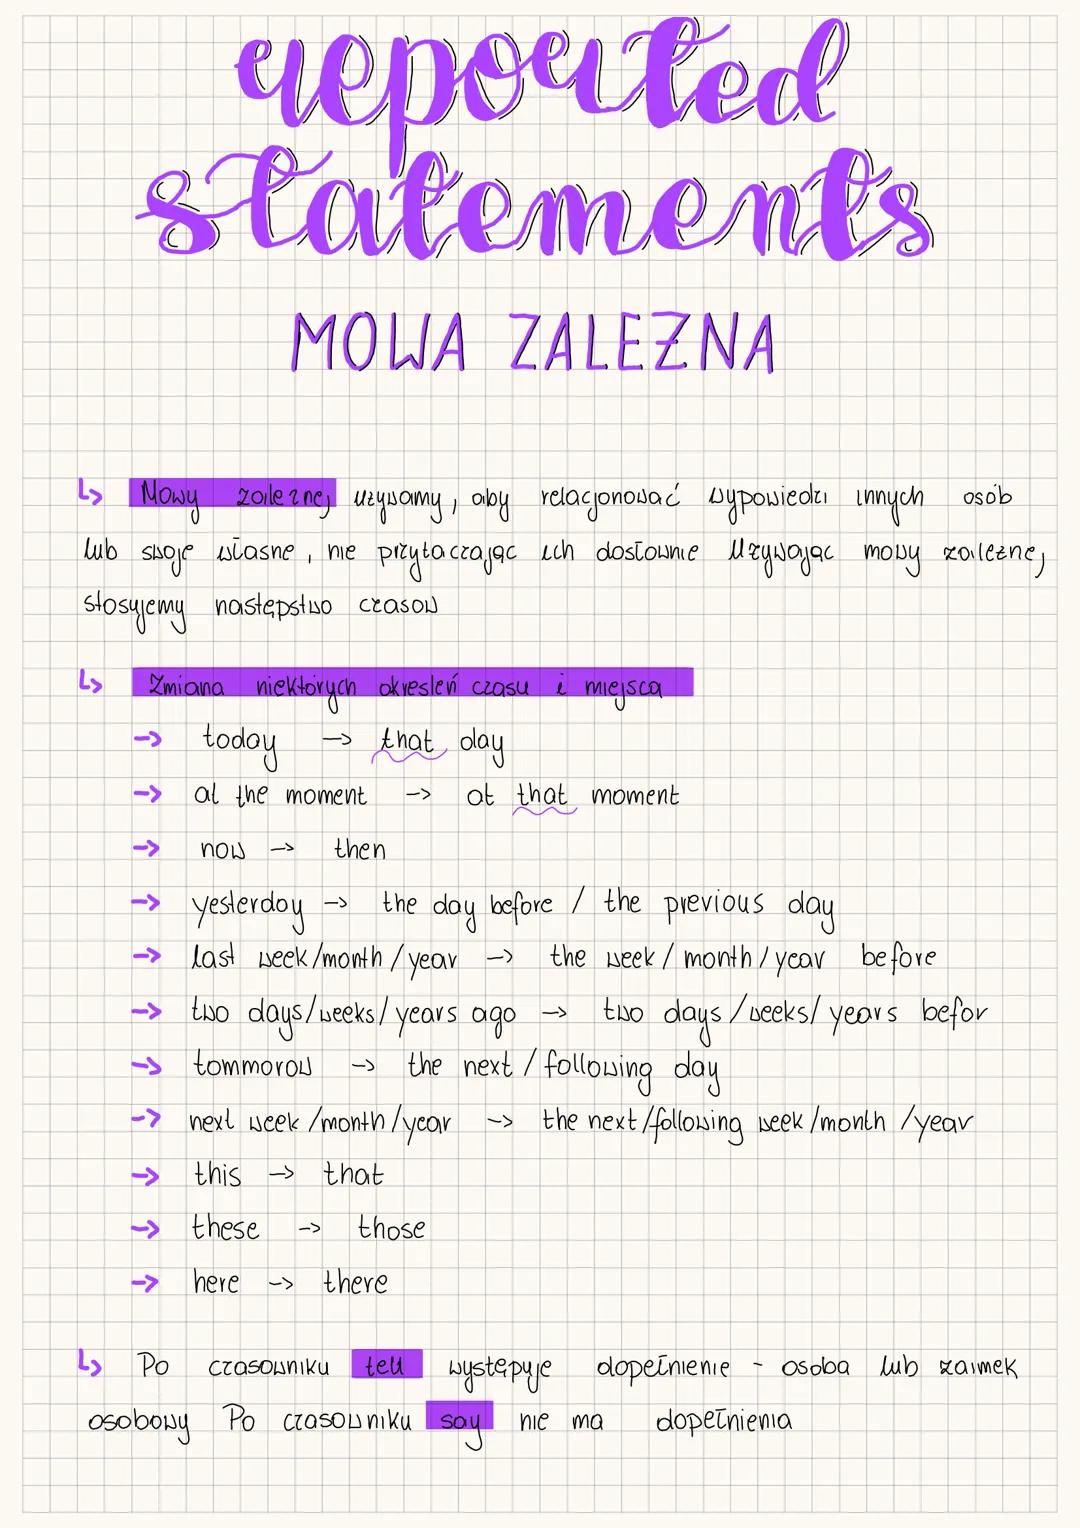 reported
statements
MOWA ZALEŻNA
↳ Mowy zależnej używamy, aby relacjonować wypowiedzi innych osób
lub swoje własne, nie przytaczając ich dosłownie Używając mowy zależnej
stosujemy następstwo czasów
↳ Zmiana niektórych określeń czasu i miejsca
→ today → that day
→ at the moment → at that moment
→ now → then
→ yesterday → the day before / the previous day
→ last week/month/year → the week/month/year before
→ two days/weeks/years ago → two days/weeks/years befor
→ tommorow → the next / following day
→ next week/month/year → the next/following week/month/year
→ this → that
→ these → those
→ here → there
↳ Po czasowniku tell występuje dopełnienie - osoba lub zaimek
osobowy Po czasowniku say nie ma dopełnienia